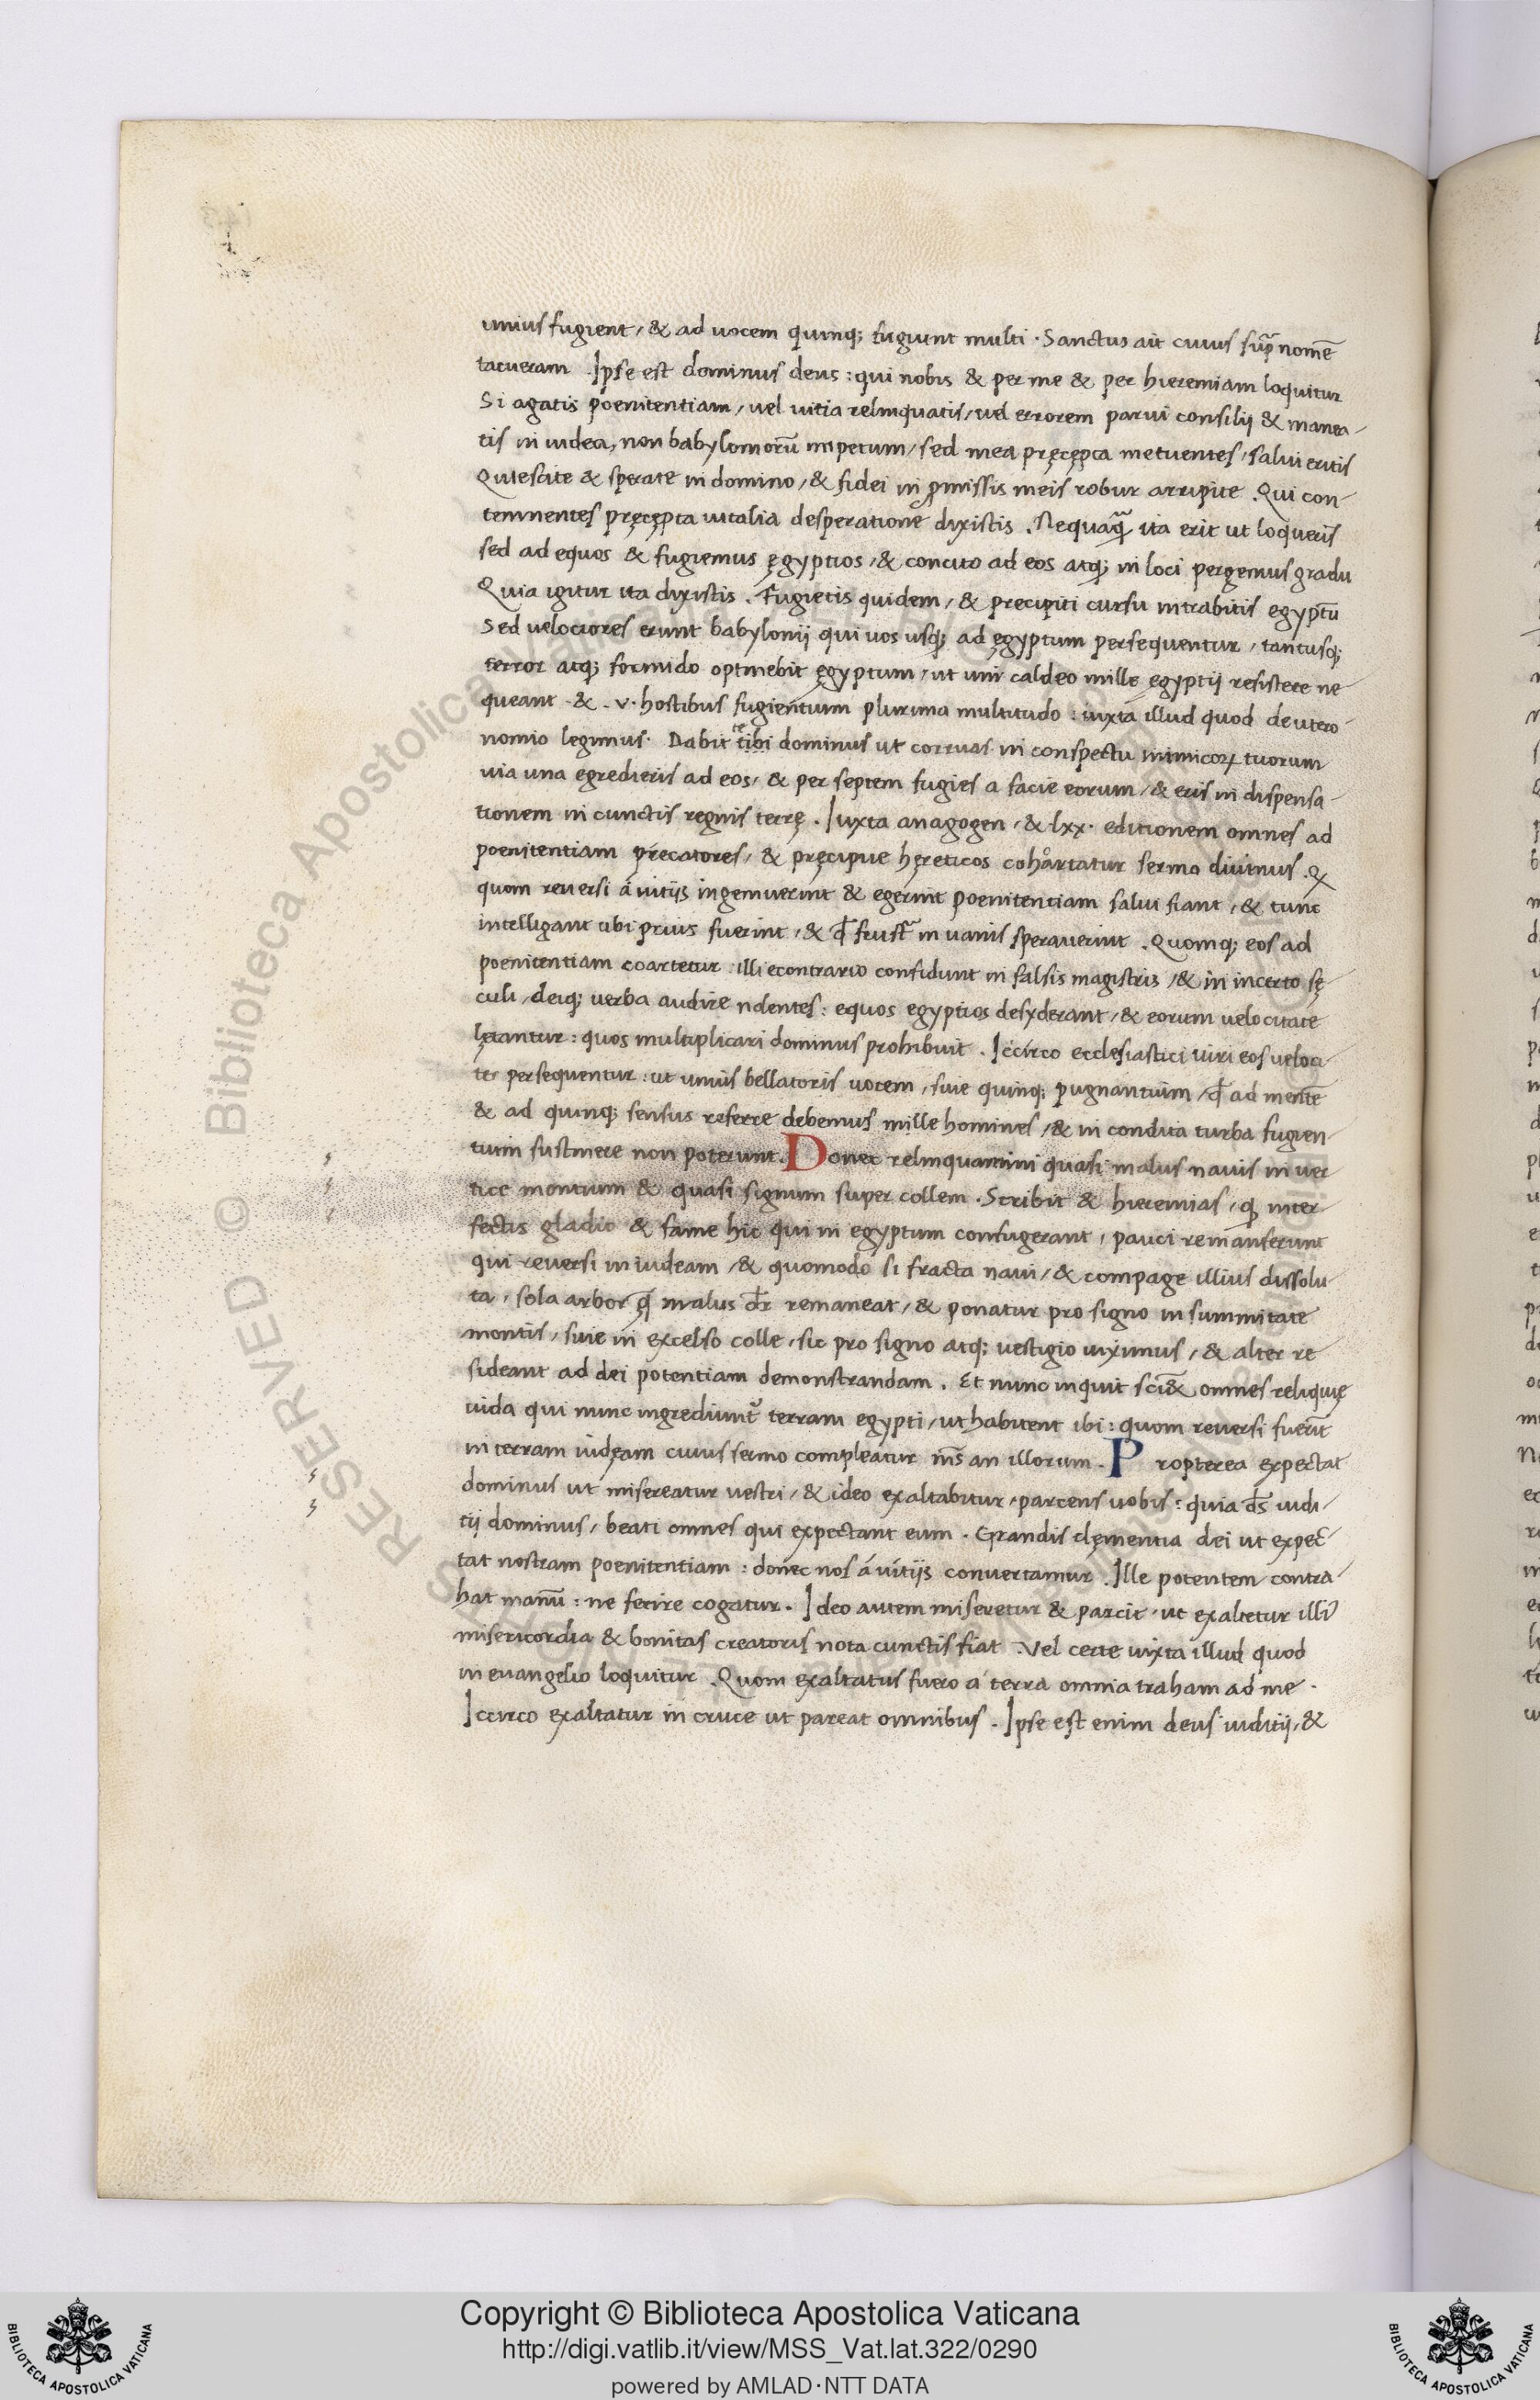 unius fugient, & ad uocem quinq; fugiunt multi. Sanctus ait cuius sup̃ nomẽ
tacueram. Ipse est dominus deus: qui nobis & per me & per hieremiam loquitur
Si agatis poenitentiam, uel uitia relinquatis, uel errorem parui consilij & manea-
tis in iudea, non babyloniorũ impetum, sed mea pręcępta metuentes, salui eritis
Quiescite & sperate in domino, & fidei in ꝓmissis meis robur arripite. Qui con-
temnentes pręcępta uitalia desperatione dixistis. Nequaq̃ ita erit ut loqueris
sed ad equos & fugiemus ęgyptios, & concito ad eos atq; in loci pergemus gradu
Quia igitur ita dixistis. Fugietis quidem, & precipiti cursu intrabitis egyptũ
Sed uelociores erunt babylonij qui uos usq; ad ęgyptum persequentur, tantusq;
terror atq; formido optinebit ęgyptum, ut uni caldeo mille ęgyptij resistere ne-
queant. & .v. hostibus fugientium plurima multitudo: iuxta illud quod deutero-
nomio legimus. Dabit te tibi dominus ut corruas in conspectu inimicoꝝ tuorum
uia una egredieris ad eos, & per septem fugies a facie eorum, & eris in dispensa-
tionem in cunctis regnis terrę. Iuxta anagogen, & lxx. editionem omnes ad
poenitentiam precatores, & pręcipue hęreticos cohåartatur sermo diuinus. Qꝝ
quom reuersi á uitijs ingemuerint & egerint poenitentiam salui fiant, & tunc
intelligant ubi prius fuerint, & ꝗ̃ frustr̃ in uanis sperauerint. Quomq; eos ad
poenitentiam coartetur: illi econtrario confidunt in falsis magistris, & in incerto sę-
culi, deiq; uerba audire ndentes: equos egyptios desyderant, & eorum uelocitate
lętantur: quos multiplicari dominus prohibuit. Iccirco ecclesiastici uiri eos ueloci-
ter persequentur: ut unius bellatoris uocem, siue quinq; pugnantium, ꝗ̃ ad mentẽ
& ad quinq; sensus referre debemus mille homines, & in condita turba fugien-
tium sustinere non poterunt. Donec relinquamini quasi malus nauis in uer
tice montium & quasi signum super collem. Scribit & hieremias, ꝙ inter-
fectis gladio & fame hic qui in egyptum confugerant, pauci remanserunt
qui reuersi in iudeam, & quomodo si fracta naui, & compage illius dissolu-
ta, sola arbor ꝗ̃ malus dr̃ remaneat, & ponatur pro signo in summitate
montis, siue in excelso colle, sic pro signo atq; uestigio uiximus, & alter re
sideant ad dei potentiam demonstrandam. Et nunc inquit sci&̃ omnes reliquię
uida qui nunc ingrediunt᷑ terram egypti, ut habitent ibi: quom reuersi fuerĩt
in terram iudęam cuius sermo compleatur m̃s an illorum. Propterea expectat
dominus ut misereatur uestri, & ideo exaltabitur, parcens uobis: quia d̃s iudi-
tij dominus, beati omnes qui expectant eum. Grandis clęmentia dei ut expec-
tat nostram poenitentiam: donec nos á uitijs conuertamur. Ille potentem contra-
hat manũ: ne ferire cogatur. Ideo autem miseretur & parcit, ut exaltetur illi᷑
misericordia & bonitas creatoris nota cunctis fiat. Vel certe iuxta illud quod
in euangelio loquitur. Quom exaltatus fuero á terra omnia traham ad me.
Iccirco exaltatur in cruce ut pareat omnibus. Ipse est enim deus iuditij, &
Copyright © Biblioteca Apostolica Vaticana
http://digi.vatlib.it/view/MSS_Vat.lat.322/0290
powered by AMLAD·NTT DATA
BIBLIOTECA APOSTOLICA VATICANA
BIBLIOTECA APOSTOLICA VATICANA